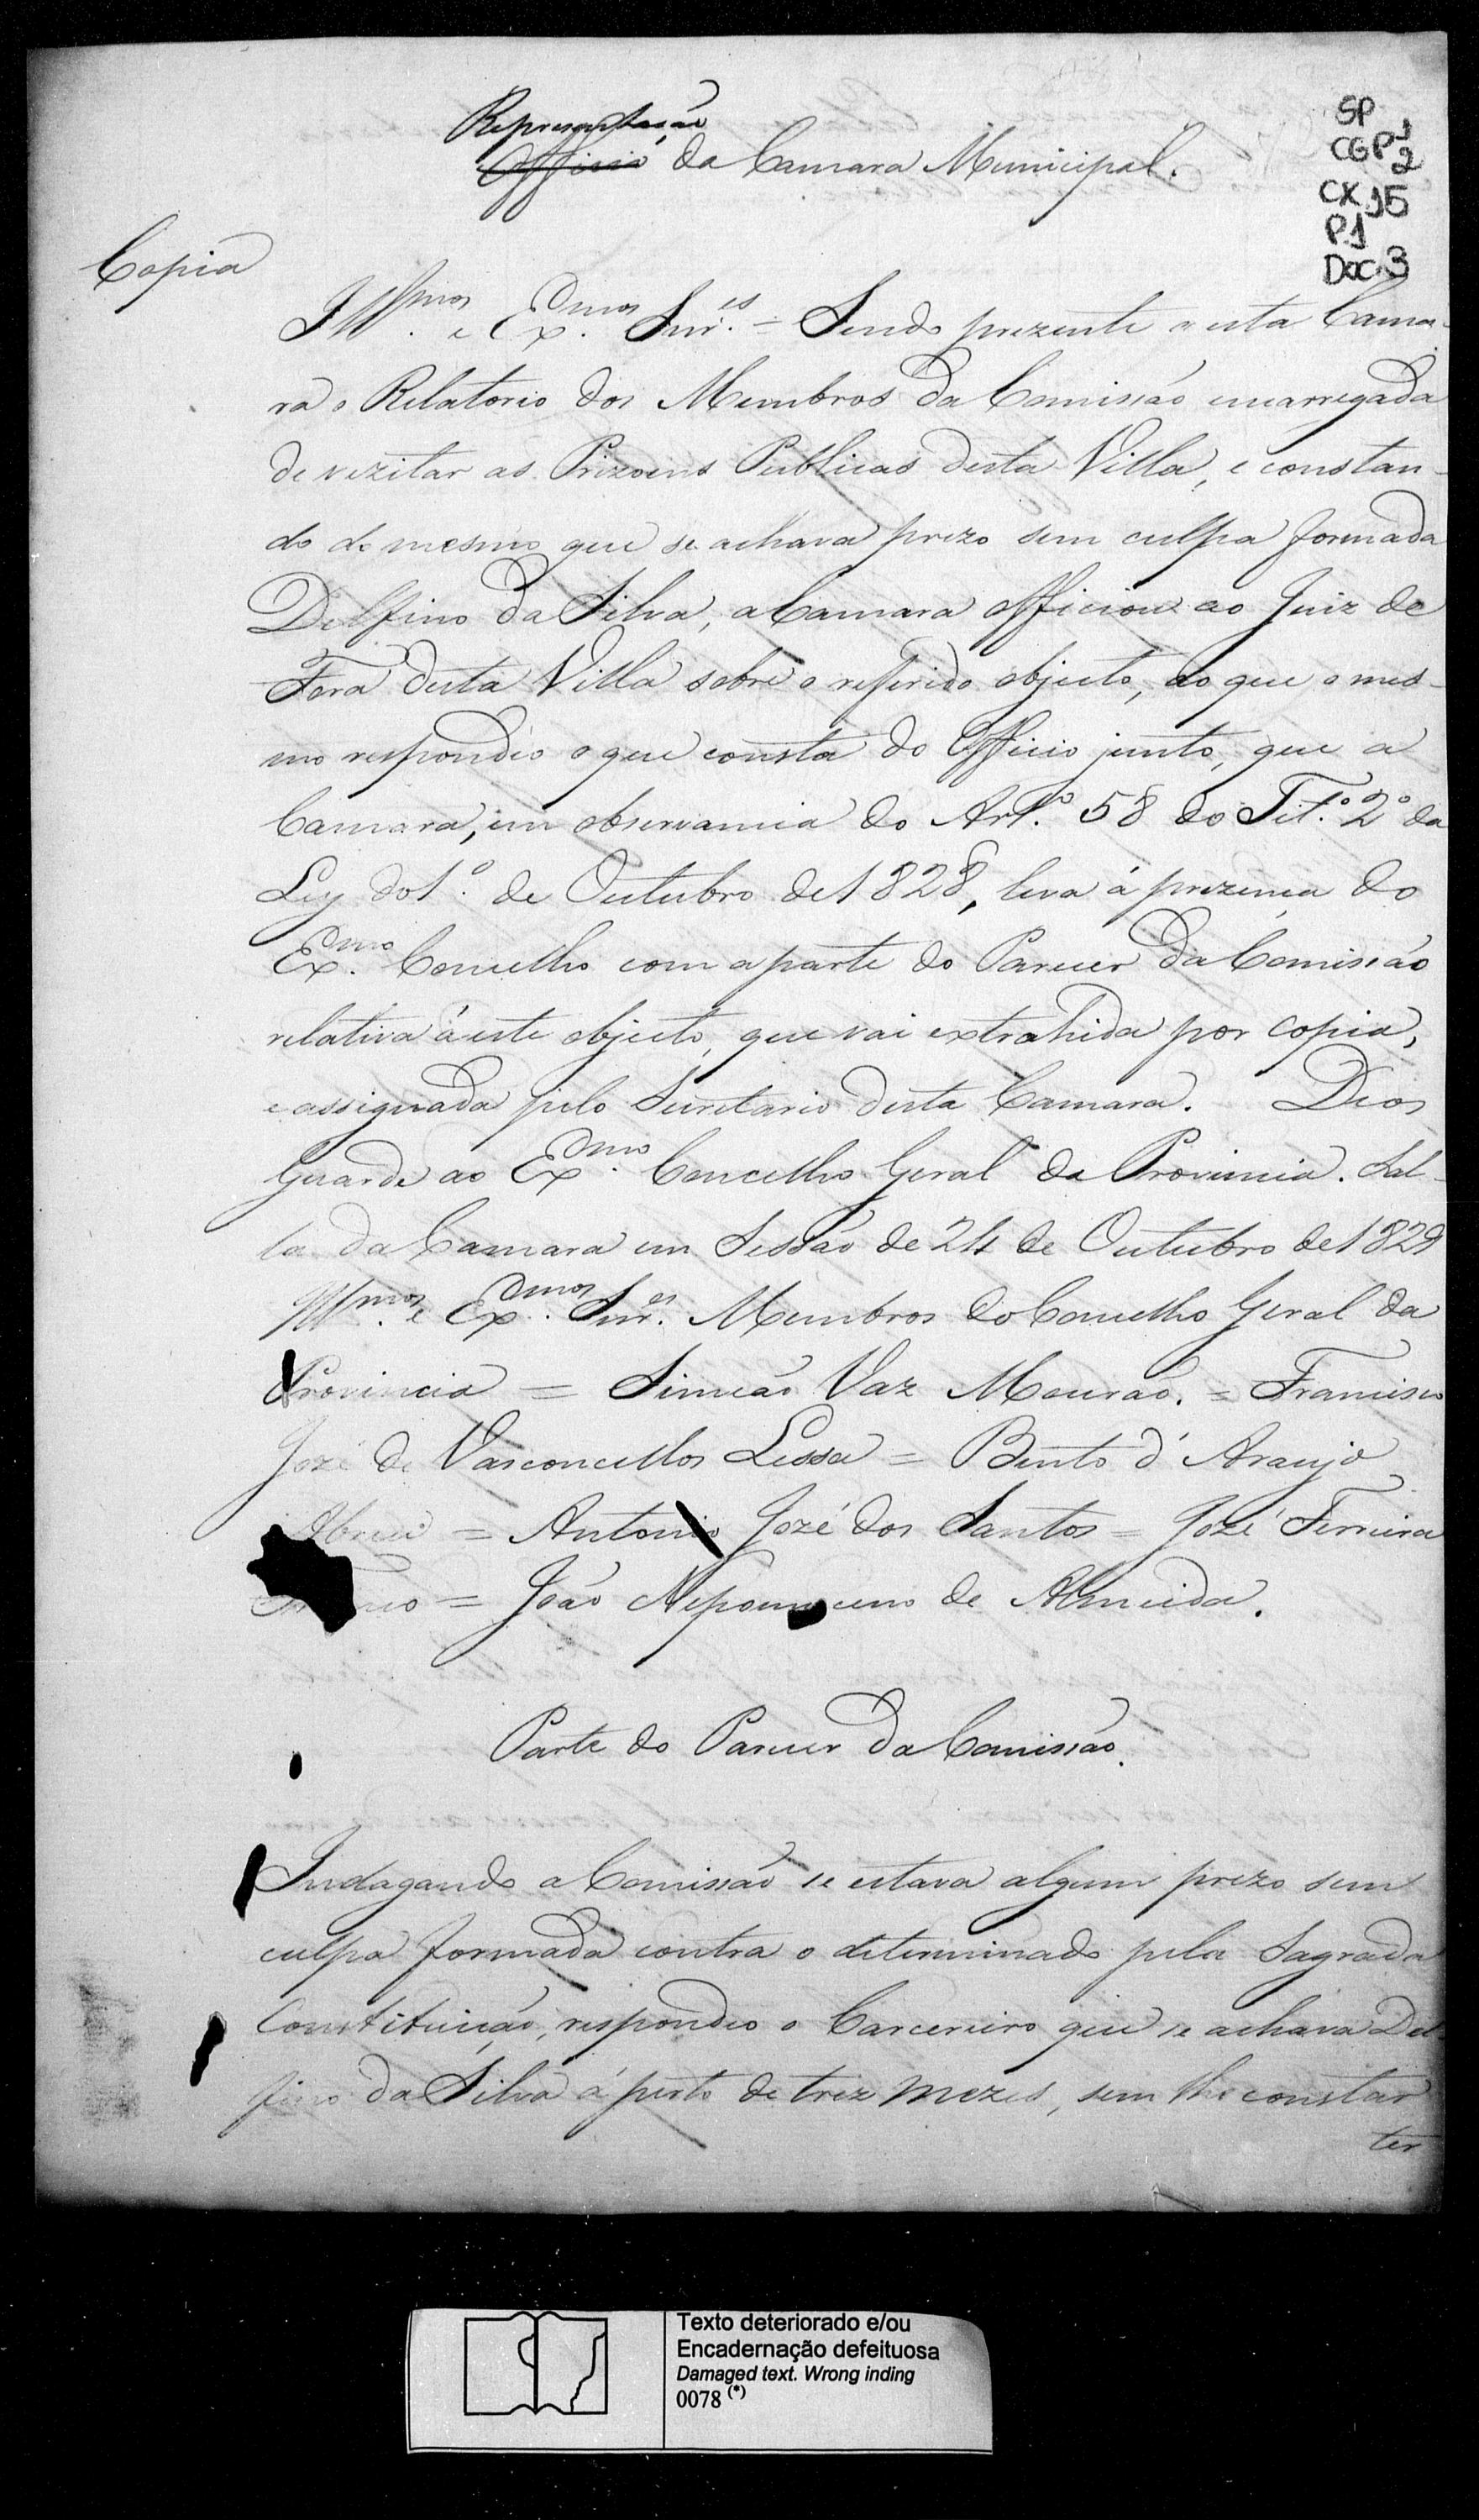 Representação
Officio da Camara Municipal.
SP
CGP1
2
CX 15
P.1
Doc. 3
Copia
Illmos. e Exmos. Snr.es = Sendo prezente a esta Cama-
ra o Relatorio dos Membros da Comissão encarregada
de vezitar as Prizoens Publicas desta Villa, e constan-
do do mesmo que se achava prezo sem culpa formada
Delfino da Silva, a Camara officiou ao Juiz de
Fora desta Villa sobre o refferido objecto, ao que o mes-
mo respondêo o que consta do Officio junto, que a
Camara, em observancia do Art.º 58 do Tit.º 2º da
Ley do 1.º de Outubro de 1828, leva á prezença do
Exmo. Concelho com a parte do Parecer da Comissão
relativa á este objecto, que vai extrahida por copia,
e assignada pelo Secretario desta Camara. Deos
Guarde ao Exmo. Concelho Geral da Provincia. Sal-
la da Camara em Sessão de 24 de Outubro de 1829
Illmos. e Exmos. Snr.es Membros do Concelho Geral da
Provincia = Simeão Vaz Mourão. = Francisco
Jozé de Vasconcellos Lessa = Bento d'Araujo
Abreu = Antonio Jozé dos Santos = Jozé Ferreira
= João Nepomuceno de Almeida.
Parte do Parecer da Comissão.
Indagando a Comissão se estava algum prezo sem
culpa formada contra o determinado pela Sagrada
Constituição, respondeo o Carcereiro que se achava Del-
fino da Silva á perto de trez mezes, sem lhe constar
ter
Texto deteriorado e/ou
Encadernação defeituosa
Damaged text. Wrong inding
0078 (*)